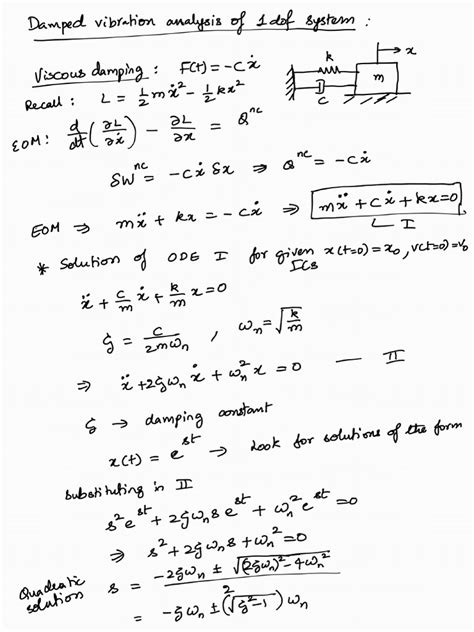 Damped vibration analysis of 1 dof system :
Viscous damping : F(t) = -cẋ
k
x
m
c
Recall : L = ½mẋ² - ½kx²
EOM: d/dt(∂L/∂ẋ) - ∂L/∂x = Q^nc
δW^nc = -cẋ δx ⇒ Q^nc = -cẋ
EOM ⇒ mẍ + kx = -cẋ ⇒ mẍ + cẋ + kx = 0
I
* Solution of ODE I for given x(t=0) = x₀, v(t=0) = v₀
ICs
ẍ + c/m ẋ + k/m x = 0
ζ = c/2mωₙ , ωₙ = √(k/m)
⇒ ẍ + 2ζωₙẋ + ωₙ²x = 0 — II
ζ → damping constant
x(t) = e^st → Look for solutions of the form
Substituting in II
s²e^st + 2ζωₙse^st + ωₙ²e^st = 0
⇒ s² + 2ζωₙs + ωₙ² = 0
Quadratic solution s = (-2ζωₙ ± √((2ζωₙ)² - 4ωₙ²))/2
= -ζωₙ ± (√(ζ² - 1))ωₙ